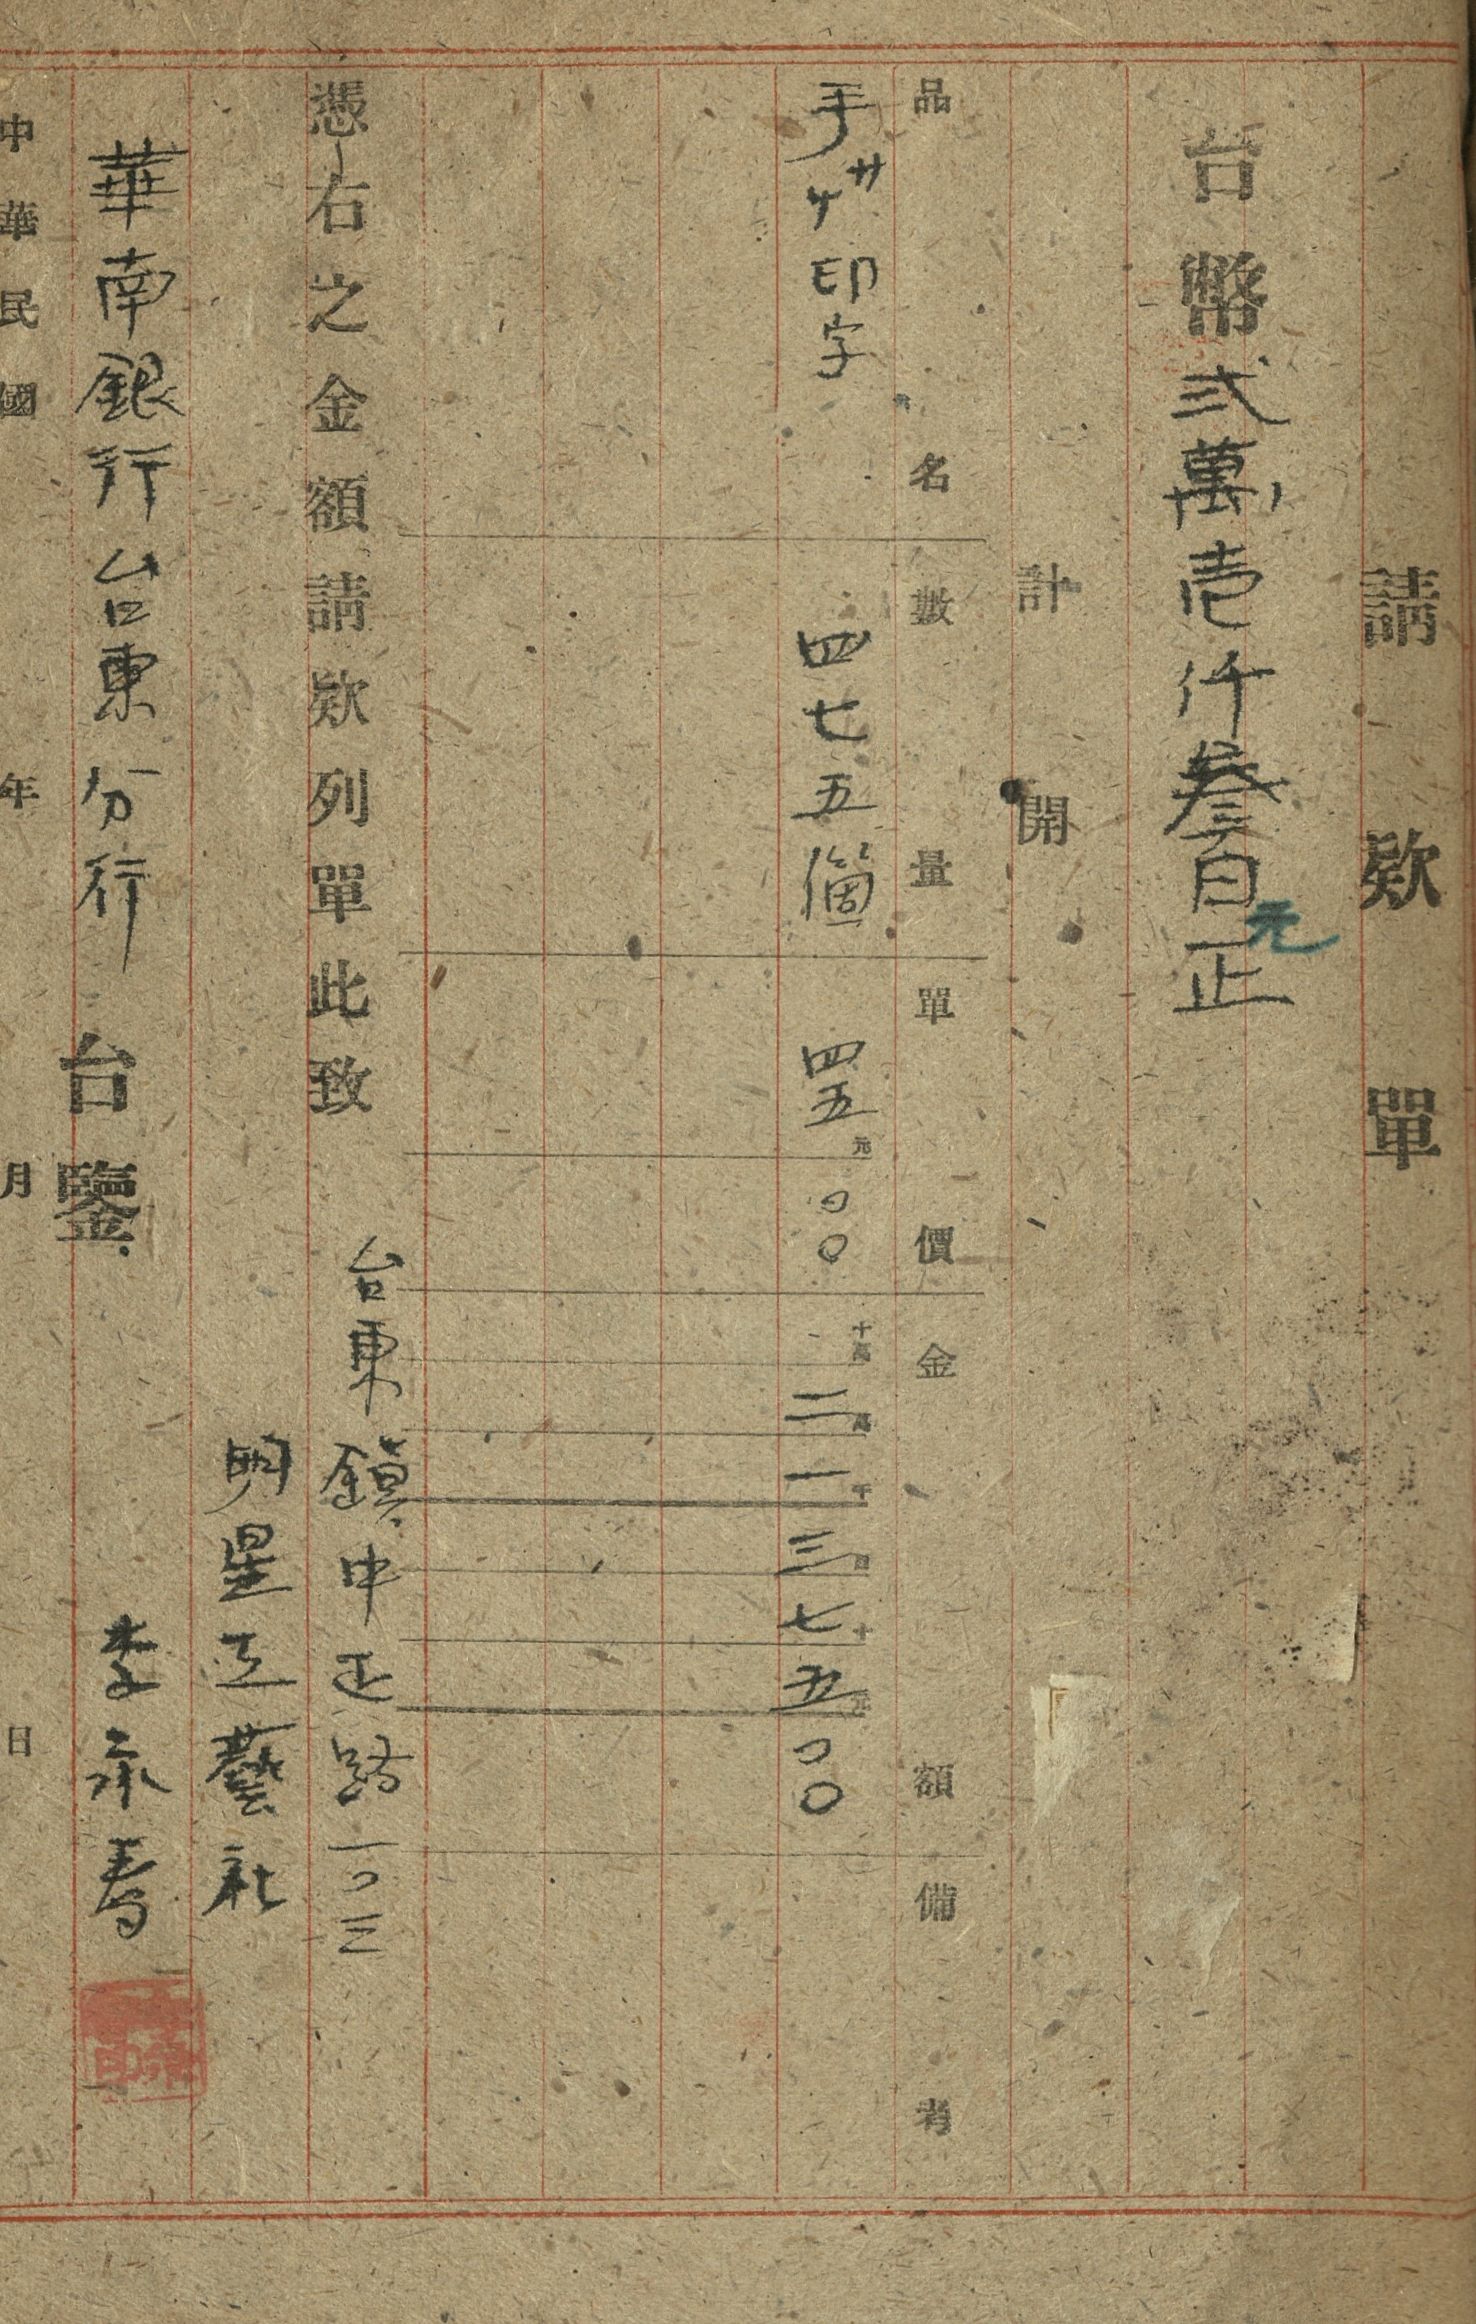 請欵單
台幣弍萬壱仟叁百元正
計開
品名 數量 單價 金額 備考
手サゲ印字 四七五箇 四五元〇〇 十萬 二萬 一千 三百 七十 五元 〇〇
憑右之金額請欵列單此致
台東鎮中正路一〇三
明星工藝社
華南銀行台東分行 台鑒
李永春
中華民國 年 月 日